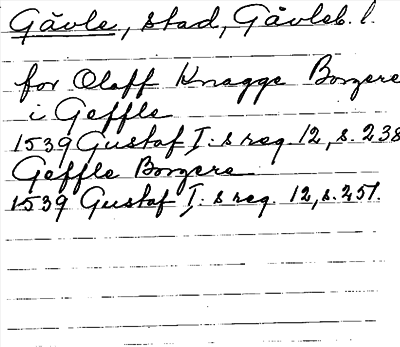 Gävle, stad, Gävleb. l.
for Olaff Knagge Borgere
i Geffle
1539 Gustaf I:s reg. 12, s. 238
Geffle Borgere
1539 Gustaf I:s reg. 12, s. 251.